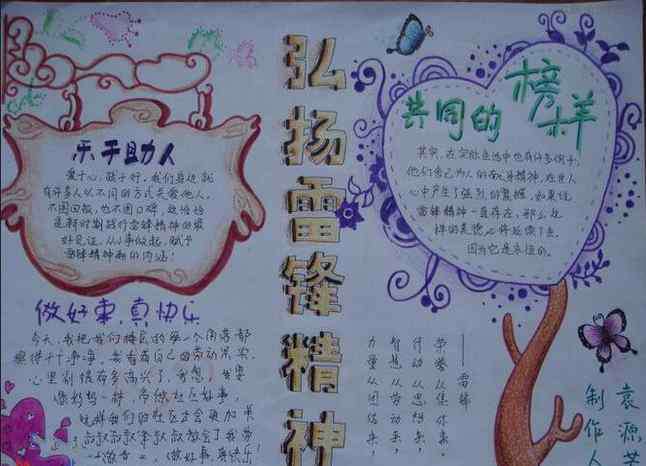 弘扬雷锋精神
乐于助人
爱于心，践于行，我们身边就
有许多人以不同的方式关爱他人，
不图回报，也不图口碑，这恰恰
是新时期践行雷锋精神的最
好见证。从小事做起，赋予
雷锋精神新的内涵！
做好事，真快乐
今天，我把我们楼民的每一个角落都
擦得干干净净，我看着自己的劳动果实，
心里别提有多高兴了，我想，我要
像妈妈一样，带做社区好事，
这样我们的社区才会更加美
做好事，真快乐！
共同的榜样
其实，在实际生活中也有许多例子，
他们舍己为人的
心中产生了强烈的震撼，如果说
雷锋精神一直存在，那么这
样的美德必将延续下去，
因为它是永恒的。
——雷锋
荣誉从集体来，
行动从思想来，
智慧从劳动来，
力量从团结来，
制作人
袁源